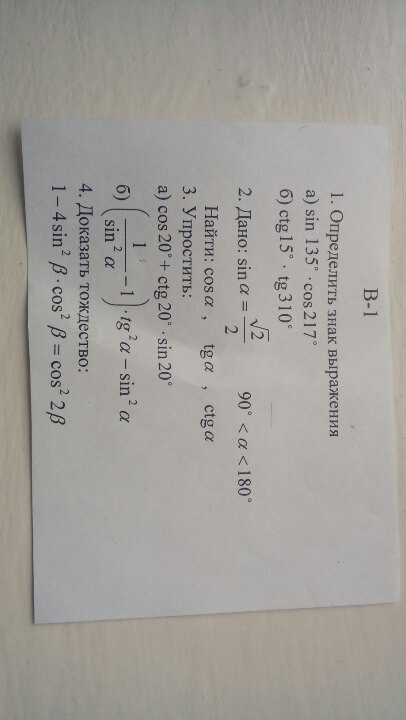 В-1
1. Определить знак выражения
а) sin 135° · cos 217°
б) ctg15° · tg310°
2. Дано: sin α = √2/2   90° < α < 180°
Найти: cos α ,   tg α ,   ctg α
3. Упростить:
а) cos 20° + ctg 20° · sin 20°
б) (1/sin² α − 1) · tg² α − sin² α
4. Доказать тождество:
1 − 4 sin² β · cos² β = cos² 2β